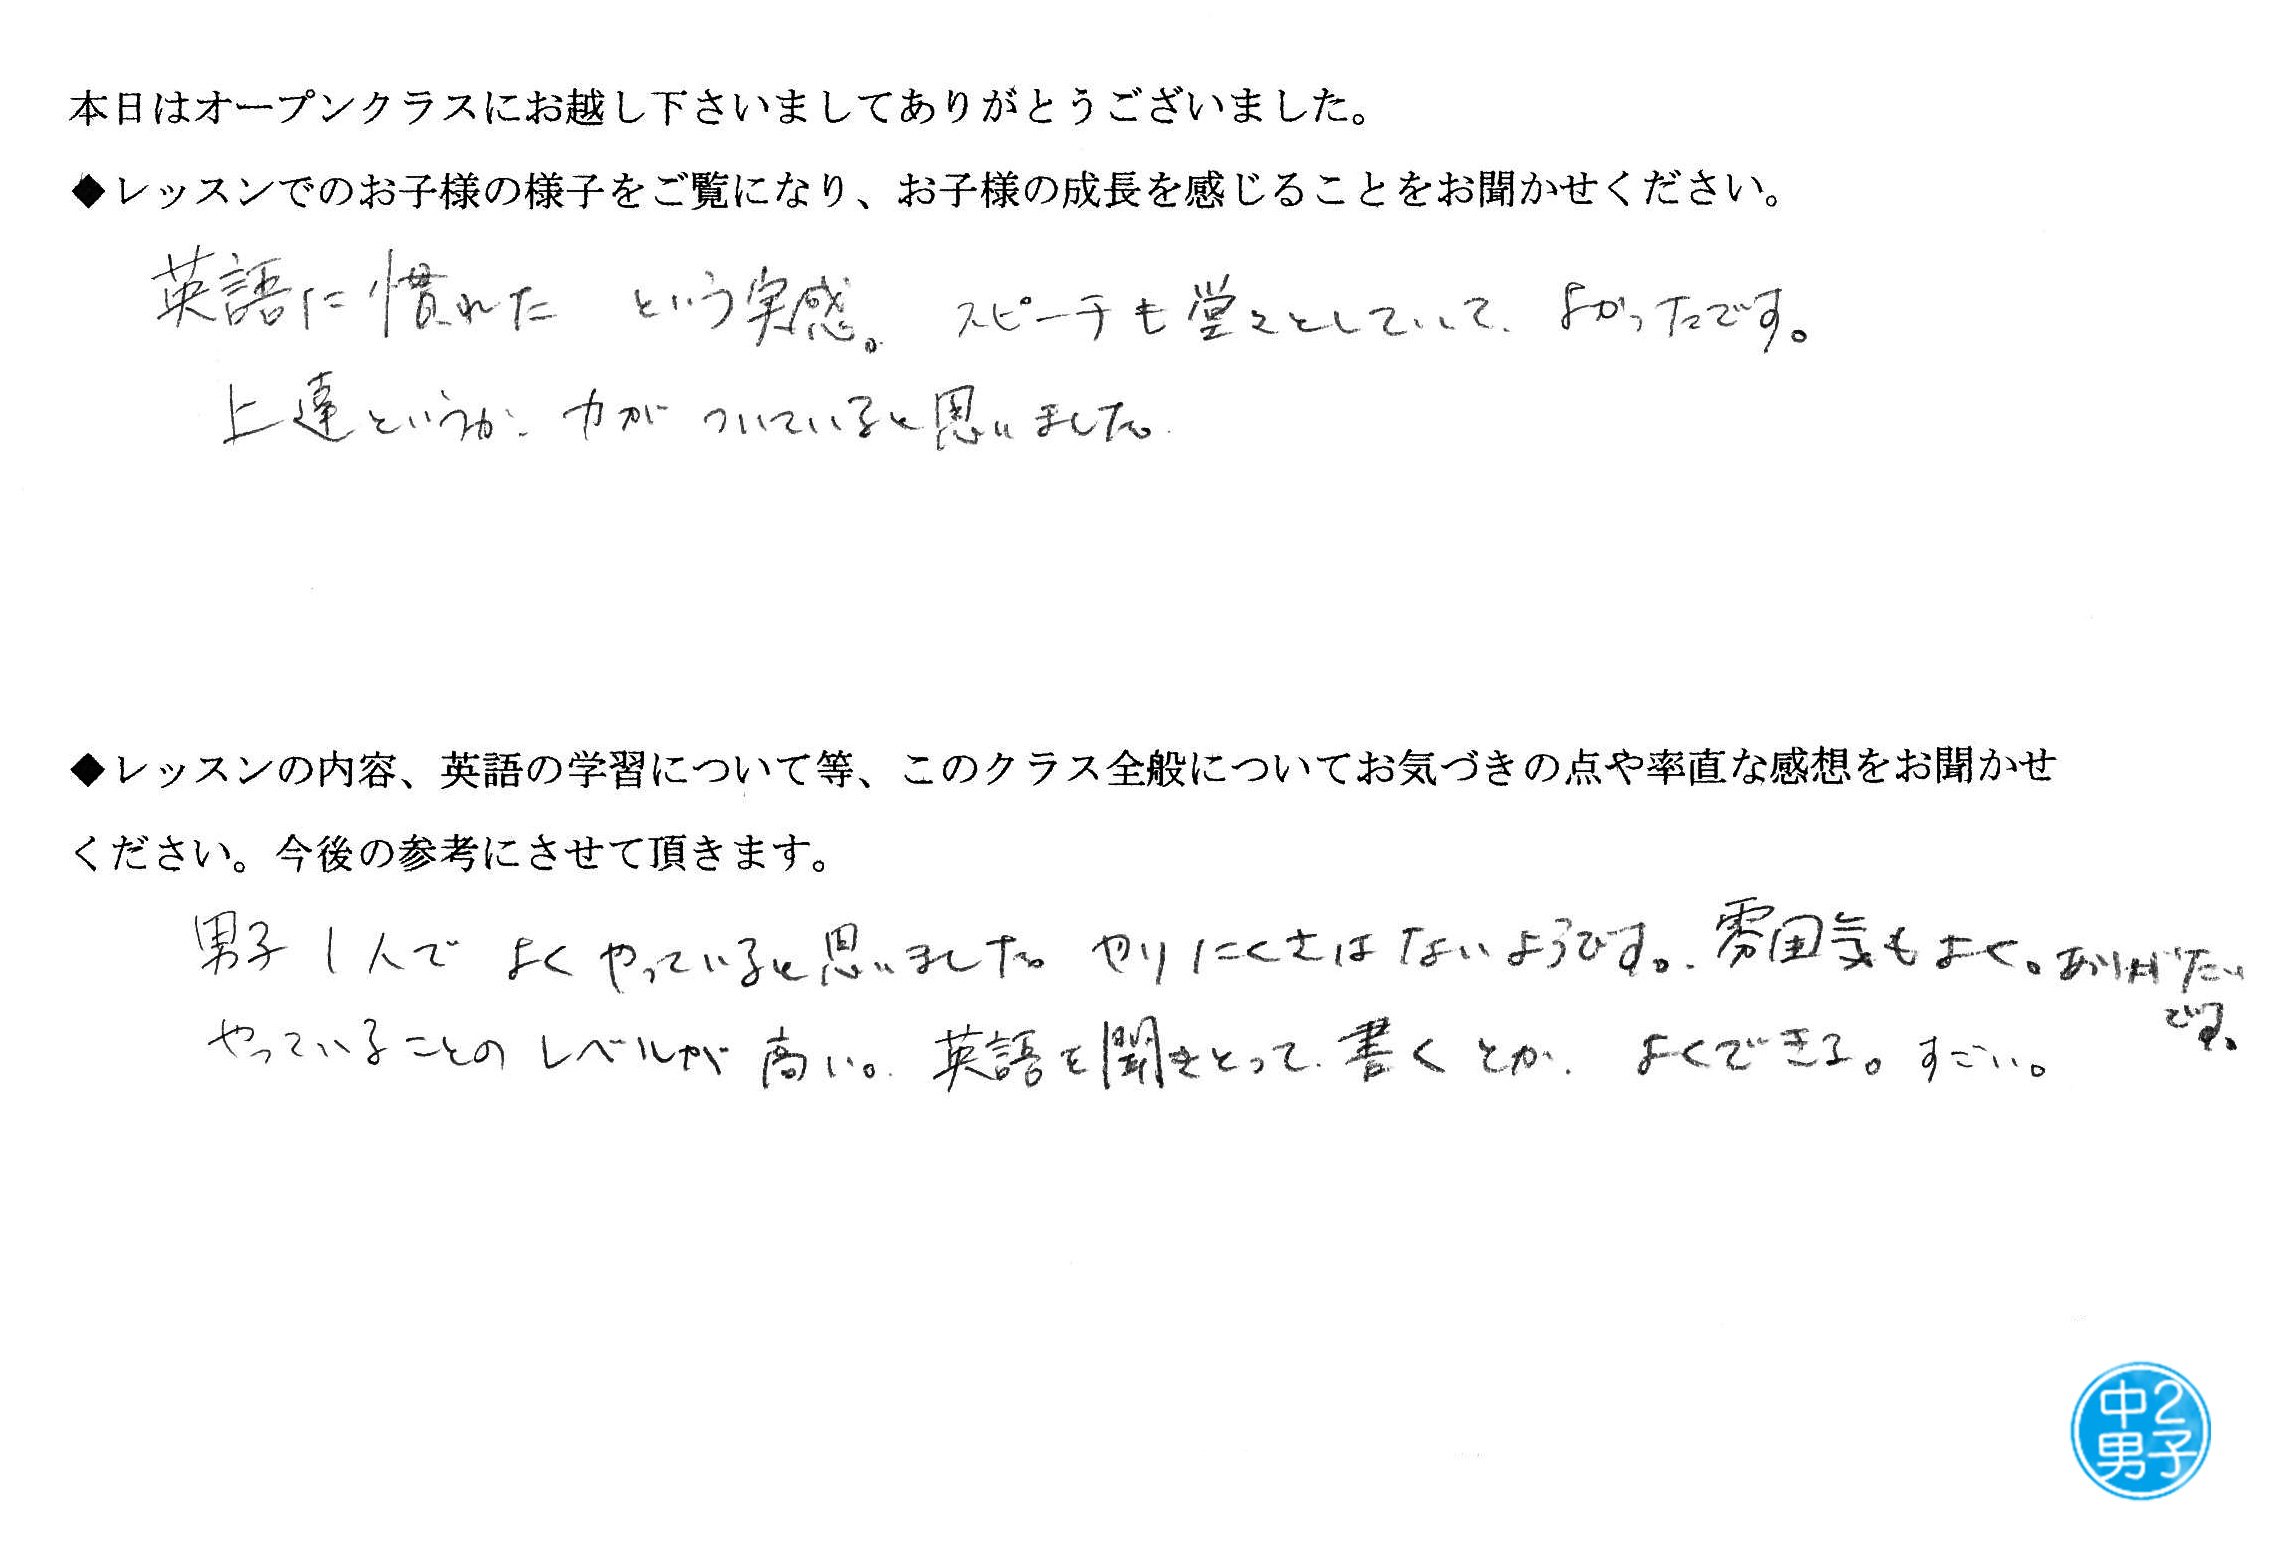 本日はオープンクラスにお越し下さいましてありがとうございました。
◆レッスンでのお子様の様子をご覧になり、お子様の成長を感じることをお聞かせください。
英語に慣れた という実感。 スピーチも堂々としていて、よかったです。
上達というか、力がついていると思いました。
◆レッスンの内容、英語の学習について等、このクラス全般についてお気づきの点や率直な感想をお聞かせ
ください。今後の参考にさせて頂きます。
男子1人でよくやっていると思いました。やりにくさはないようです。雰囲気もよく。ありがたい
です。
やっていることのレベルが高い。英語を聞きとって、書くとか、よくできる。すごい。
中2
男子